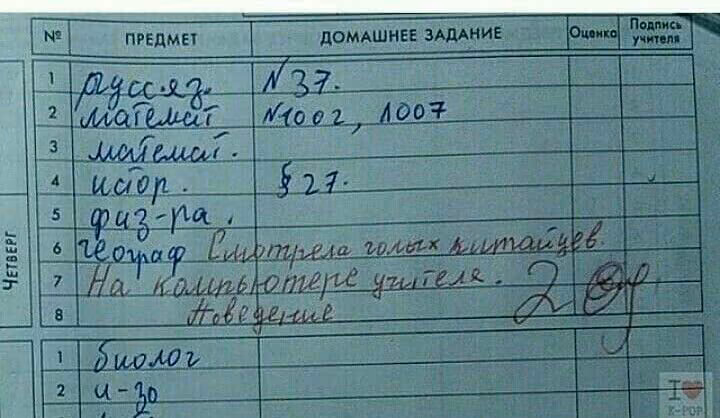 № ПРЕДМЕТ ДОМАШНЕЕ ЗАДАНИЕ Оценка Подпись учителя
1 русс.яз. №37.
2 математ №1002, 1007
3 математ.
4 истор. § 27.
5 физ-ра.
6 географ Смотрела голых китайцев.
7 На компьютере учителя. 2
8 Поведение
ЧЕТВЕРГ
1 биолог
2 и-зо
I ❤ K-POP